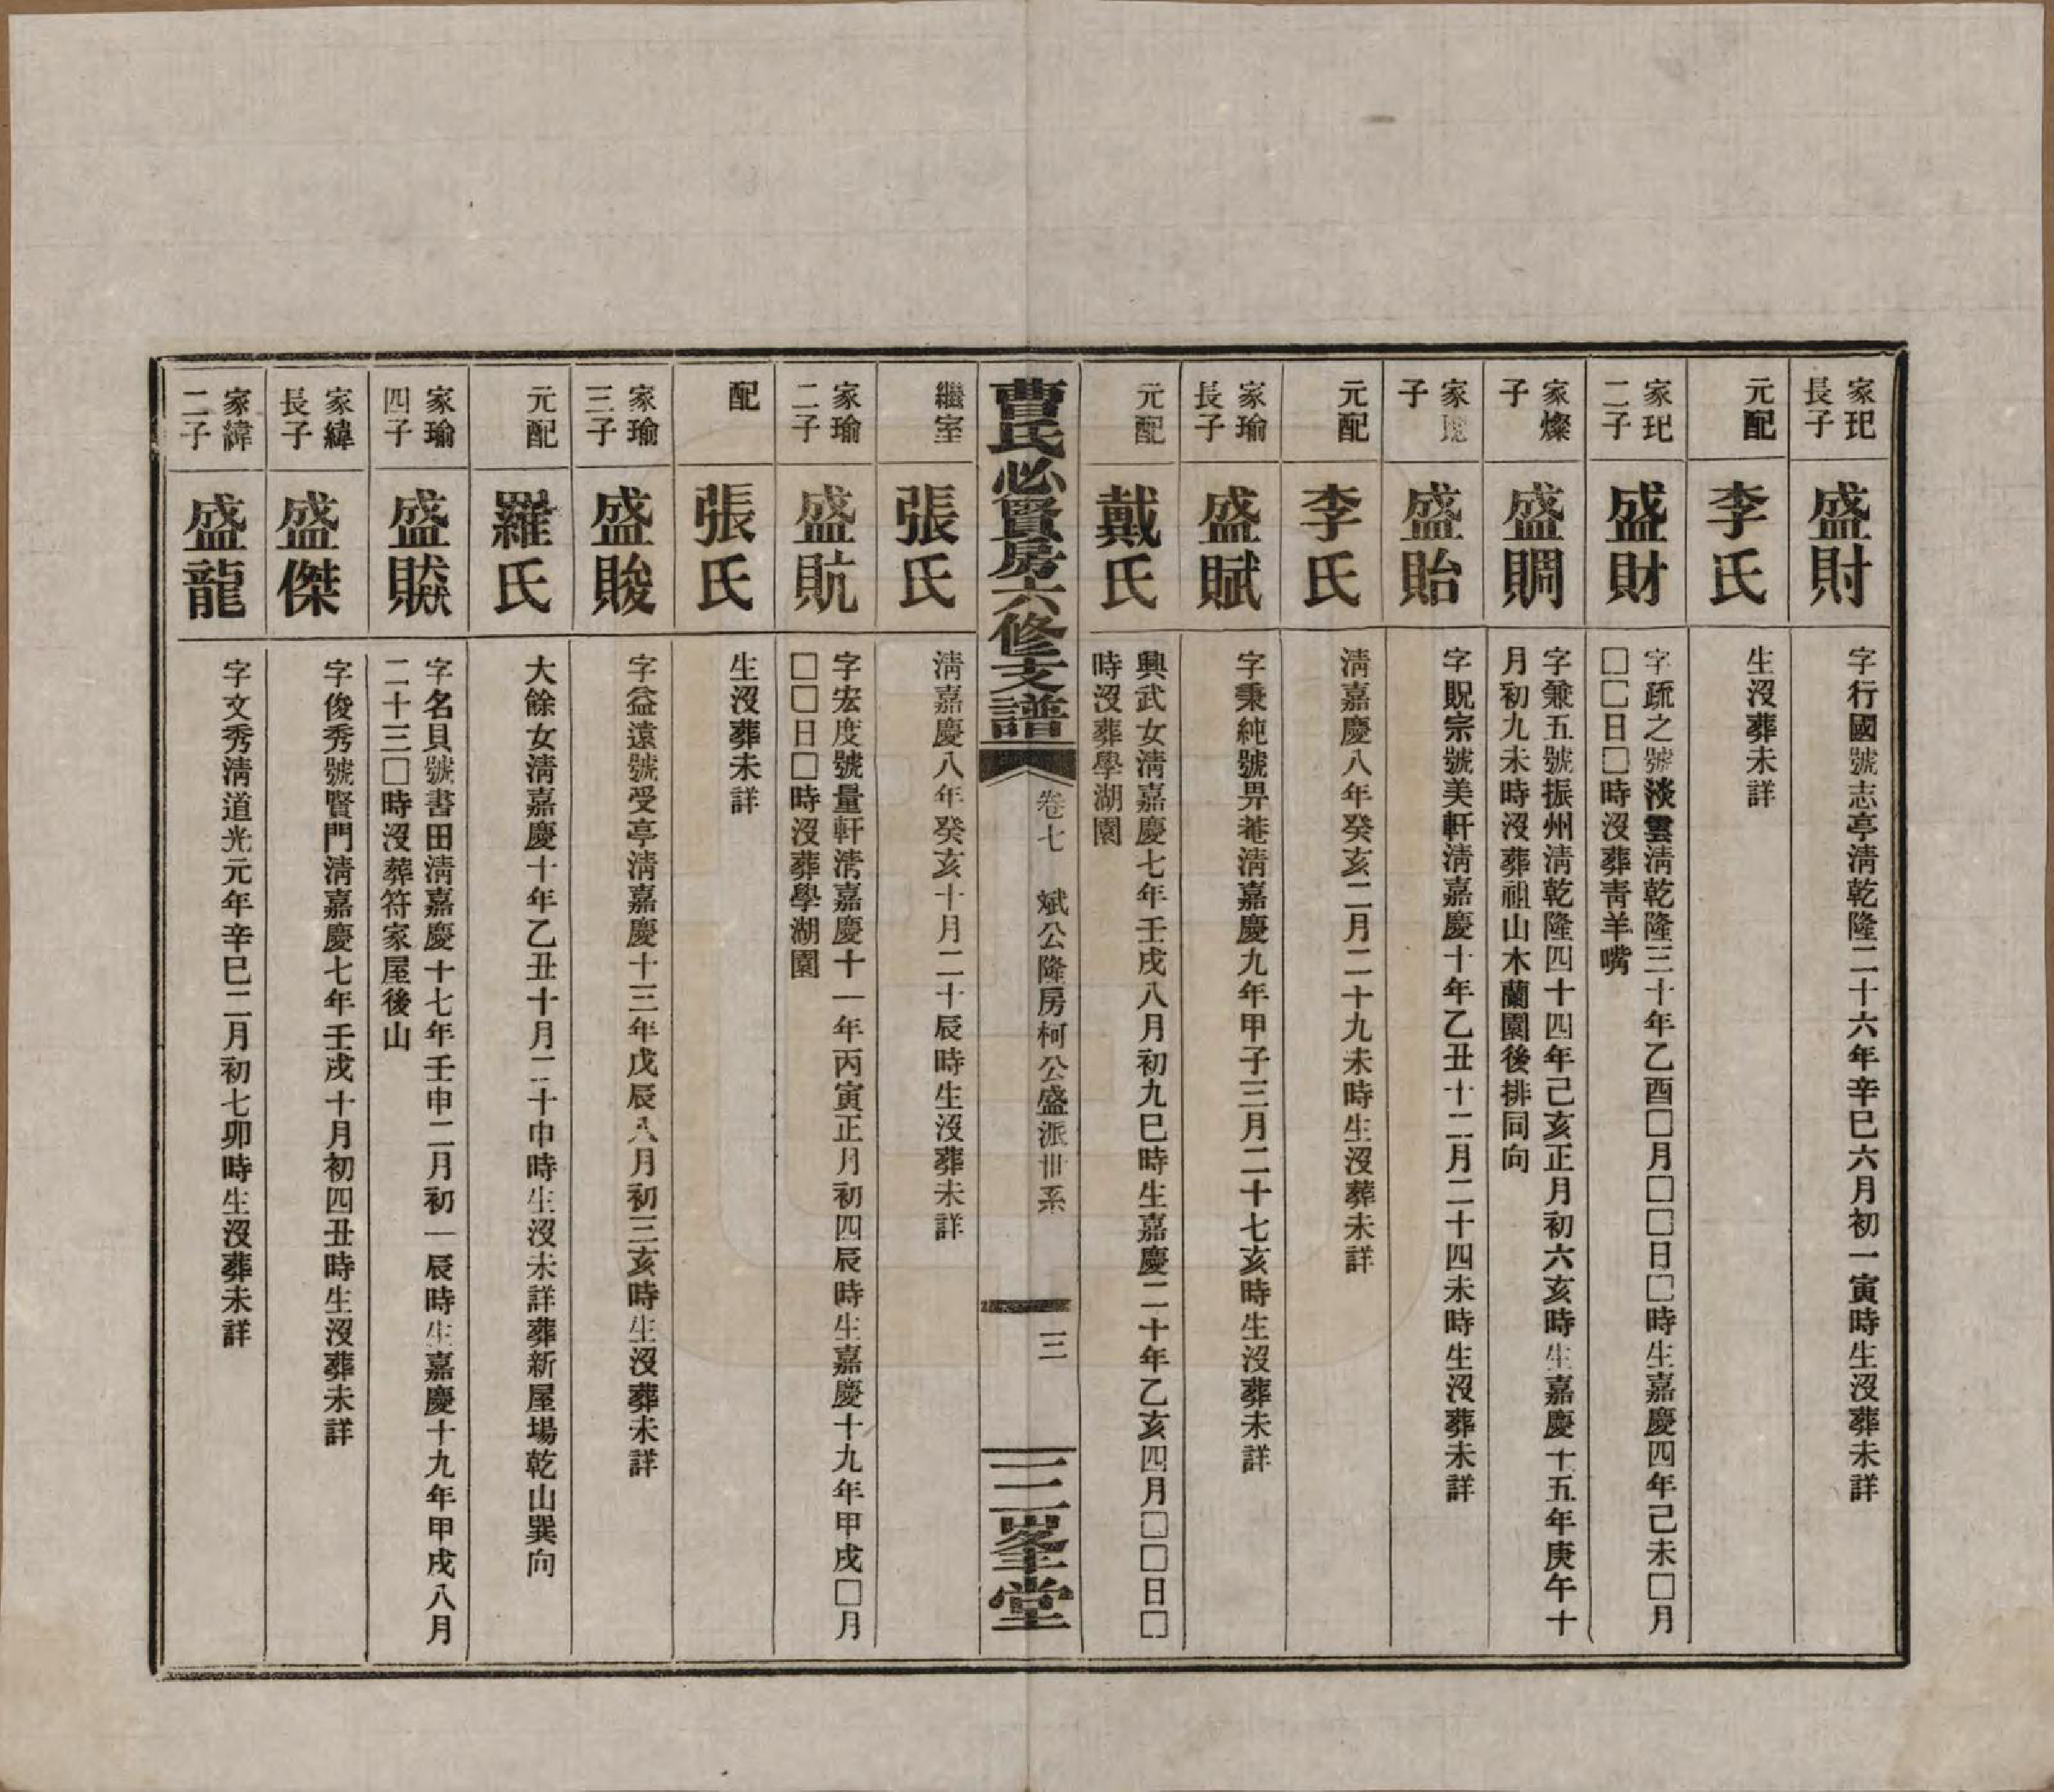 家玘
長子
盛財
字行國號志亭清乾隆二十六年辛巳六月初一寅時生沒葬未詳
元配
李氏
生沒葬未詳
家玘
二子
盛財
字疏之號淡雲清乾隆三十年乙酉□月□□日□時生嘉慶四年己未□月
□□日□時沒葬青羊嘴
家燦
子
盛賙
字兼五號振州清乾隆四十四年己亥正月初六亥時生嘉慶十五年庚午十
月初九未時沒葬祖山木蘭園後排同向
家
子
盛貽
字貺宗號美軒清嘉慶十年乙丑十二月二十四未時生沒葬未詳
元配
李氏
清嘉慶八年癸亥二月二十九未時生沒葬未詳
家瑜
長子
盛賦
字秉純號畀菴清嘉慶九年甲子三月二十七亥時生沒葬未詳
元配
戴氏
興武女清嘉慶七年壬戌八月初九巳時生嘉慶二十年乙亥四月□□日□
時沒葬學湖園
曹氏必賢房六修支譜
卷七 斌公隆房柯公盛派卌系
三
三峯堂
繼室
張氏
清嘉慶八年癸亥十月二十辰時生沒葬未詳
家瑜
二子
盛貥
字宏度號量軒清嘉慶十一年丙寅正月初四辰時生嘉慶十九年甲戌□月
□□日□時沒葬學湖園
配
張氏
生沒葬未詳
家瑜
三子
盛賐
字益遠號受亭清嘉慶十三年戊辰八月初三亥時生沒葬未詳
元配
羅氏
大餘女清嘉慶十年乙丑十月二十申時生沒未詳葬新屋場乾山巽向
家瑜
四子
盛
字名貝號書田清嘉慶十七年壬申二月初一辰時生嘉慶十九年甲戌八月
二十三□時沒葬符家屋後山
家緯
長子
盛傑
字俊秀號賢門清嘉慶七年壬戌十月初四丑時生沒葬未詳
家緯
二子
盛龍
字文秀清道光元年辛巳二月初七卯時生沒葬未詳